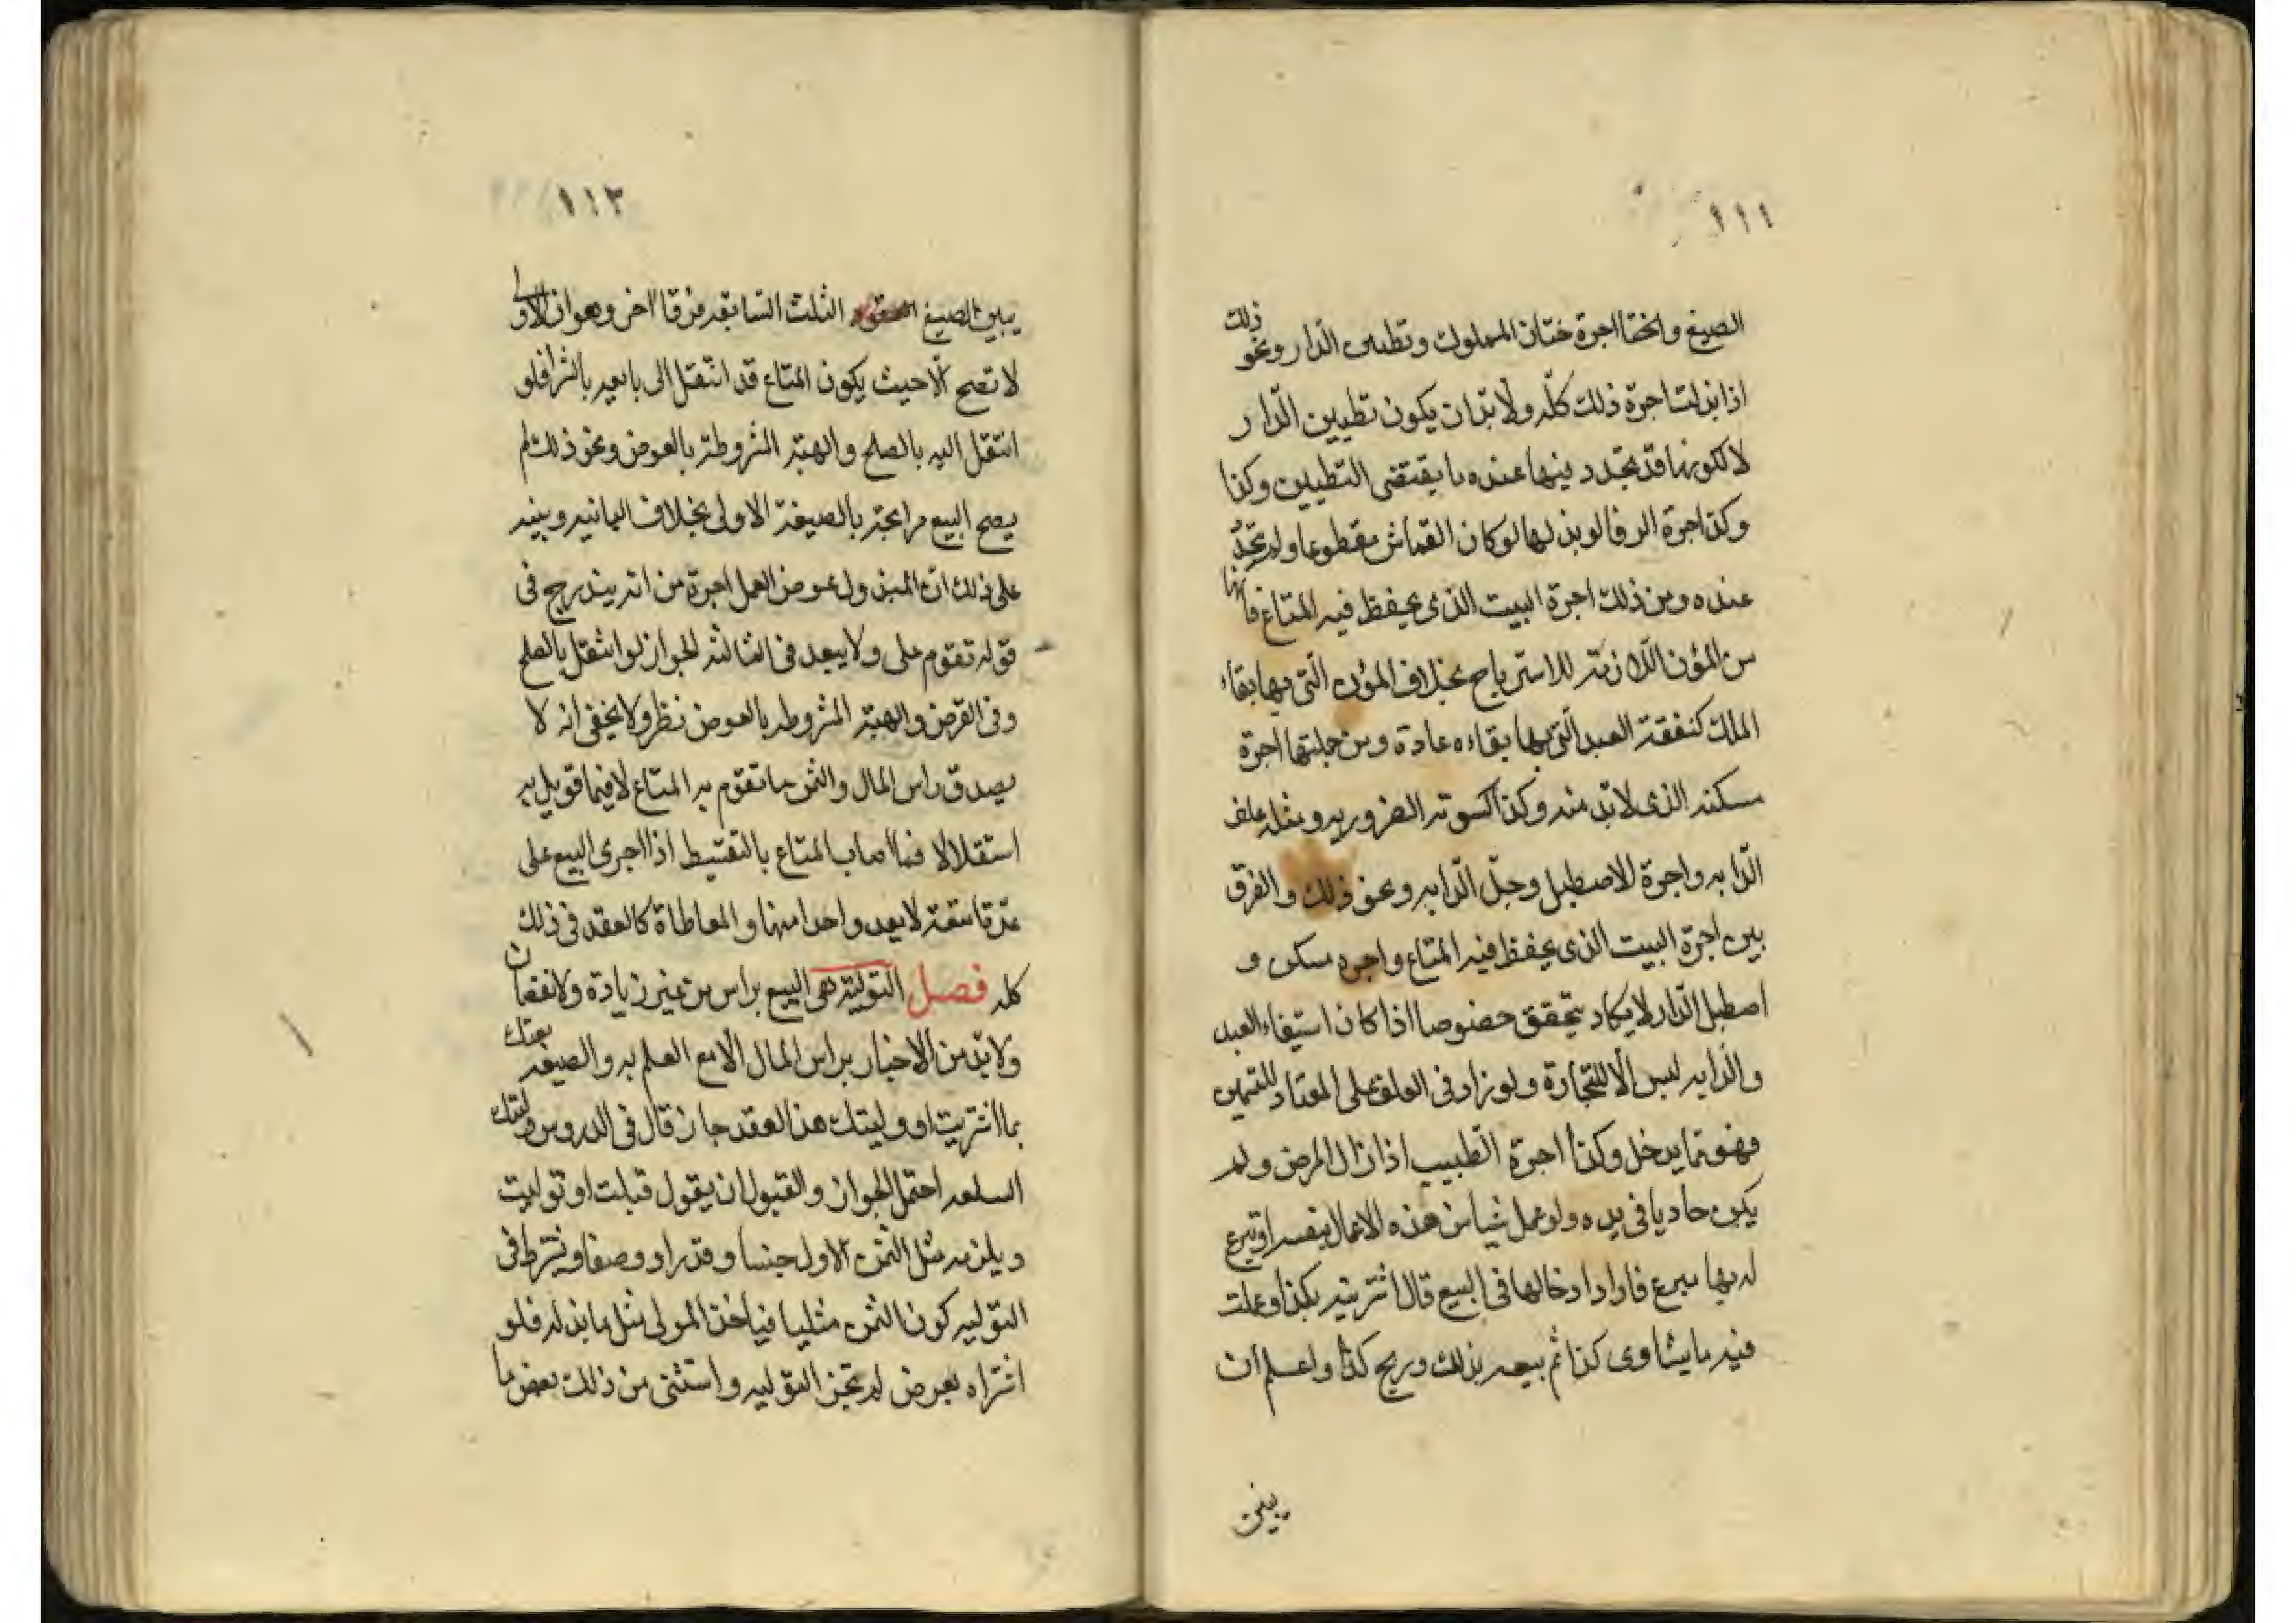 ١١١
الصيغ واخفا اجرة ختان المملوك وتطيين الدار ونحو ذلك
اذا بذلت اجرة ذلك كله ولا بد ان يكون تطيين الدار
لا لكونها قد تجدد فيها عنده ما يقتضى التطيين وكذا
وكذا اجرة الرفا لو بذلها لو كان القماش مقطوعا ولم يتجدد
عنده ومن ذلك اجرة البيت الذى يحفظ فيه المتاع فانها
من المؤن اللازمة للاسترباح بخلاف المؤن التى بها بقاء
الملك كنفقة العبد التى بها بقاءه عادة ومن جملتها اجرة
مسكنه الذى لا بد منه وكذا كسوته الضروريه ومثله علف
الدابه واجرة الاصطبل وجل الدابه ونحو ذلك والفرق
بين اجرة البيت الذى يحفظ فيه المتاع واجره مسكن و
اصطبل الدار لا يكاد يتحقق خصوصا اذا كان استيفاء العبد
والدابه ليس الا للتجارة ولو زاد فى العلف على المعتاد للتسمين
فهو مما يدخل وكذا اجرة الطبيب اذا زال المرض ولم
يكن حادثا فى يده ولو عمل شيا من هذه الاعمال بنفسه او تبرع
له بها متبرع فاراد ادخالها فى البيع قال اشتريته بكذا وعملت
فيه ما يساوى كذا ثم بيعه بذلك وربح كذا واعلم ان
بين
١١٢
بين الصيغ الثلث السابقه فرقا اخر وهو ان الاولى
لا تصح الا حيث يكون المتاع قد انتقل الى بايعه بالشرا فلو
انتقل اليه بالصلح والهبة المشروطة بالعوض ونحو ذلك لم
يصح البيع مرابحة بالصيغة الاولى بخلاف الثانيه وينبه
على ذلك ان المبذول عوض العمل اجرة من انه يندرج فى
قوله تقوم على ولا يبعد فى الثالثه الجواز لو انتقل بالصلح
وفى القرض والهبة المشروطه بالعوض نظر ولا يخفى انه لا
يصدق راس المال والثمن وما تقوم به المتاع الا فيما قوبل به
استقلالا فما اصاب المتاع بالتقسيط اذا اجرى البيع على
عدة امتعة لا يعد واحدا منها والمعاطاة كالعقد فى ذلك
كله فصل التولية هى البيع براس من غير زيادة ولا نقصان
ولا بد من الاخبار براس المال الا مع العلم به والصيغه بعتك
بما اشتريت او وليتك هذا العقد جاز قال فى الدروس وليتك
السلعه احتمل الجواز والقبول ان يقول قبلت او توليت
ويلزمه مثل الثمن الاول جنسا وقدرا ووصفا ويشترط فى
التوليه كون الثمن مثليا فياخذ المولى مثل ما بذله فلو
اشتراه بعرض لم تجز التوليه واستثنى من ذلك بعض ما